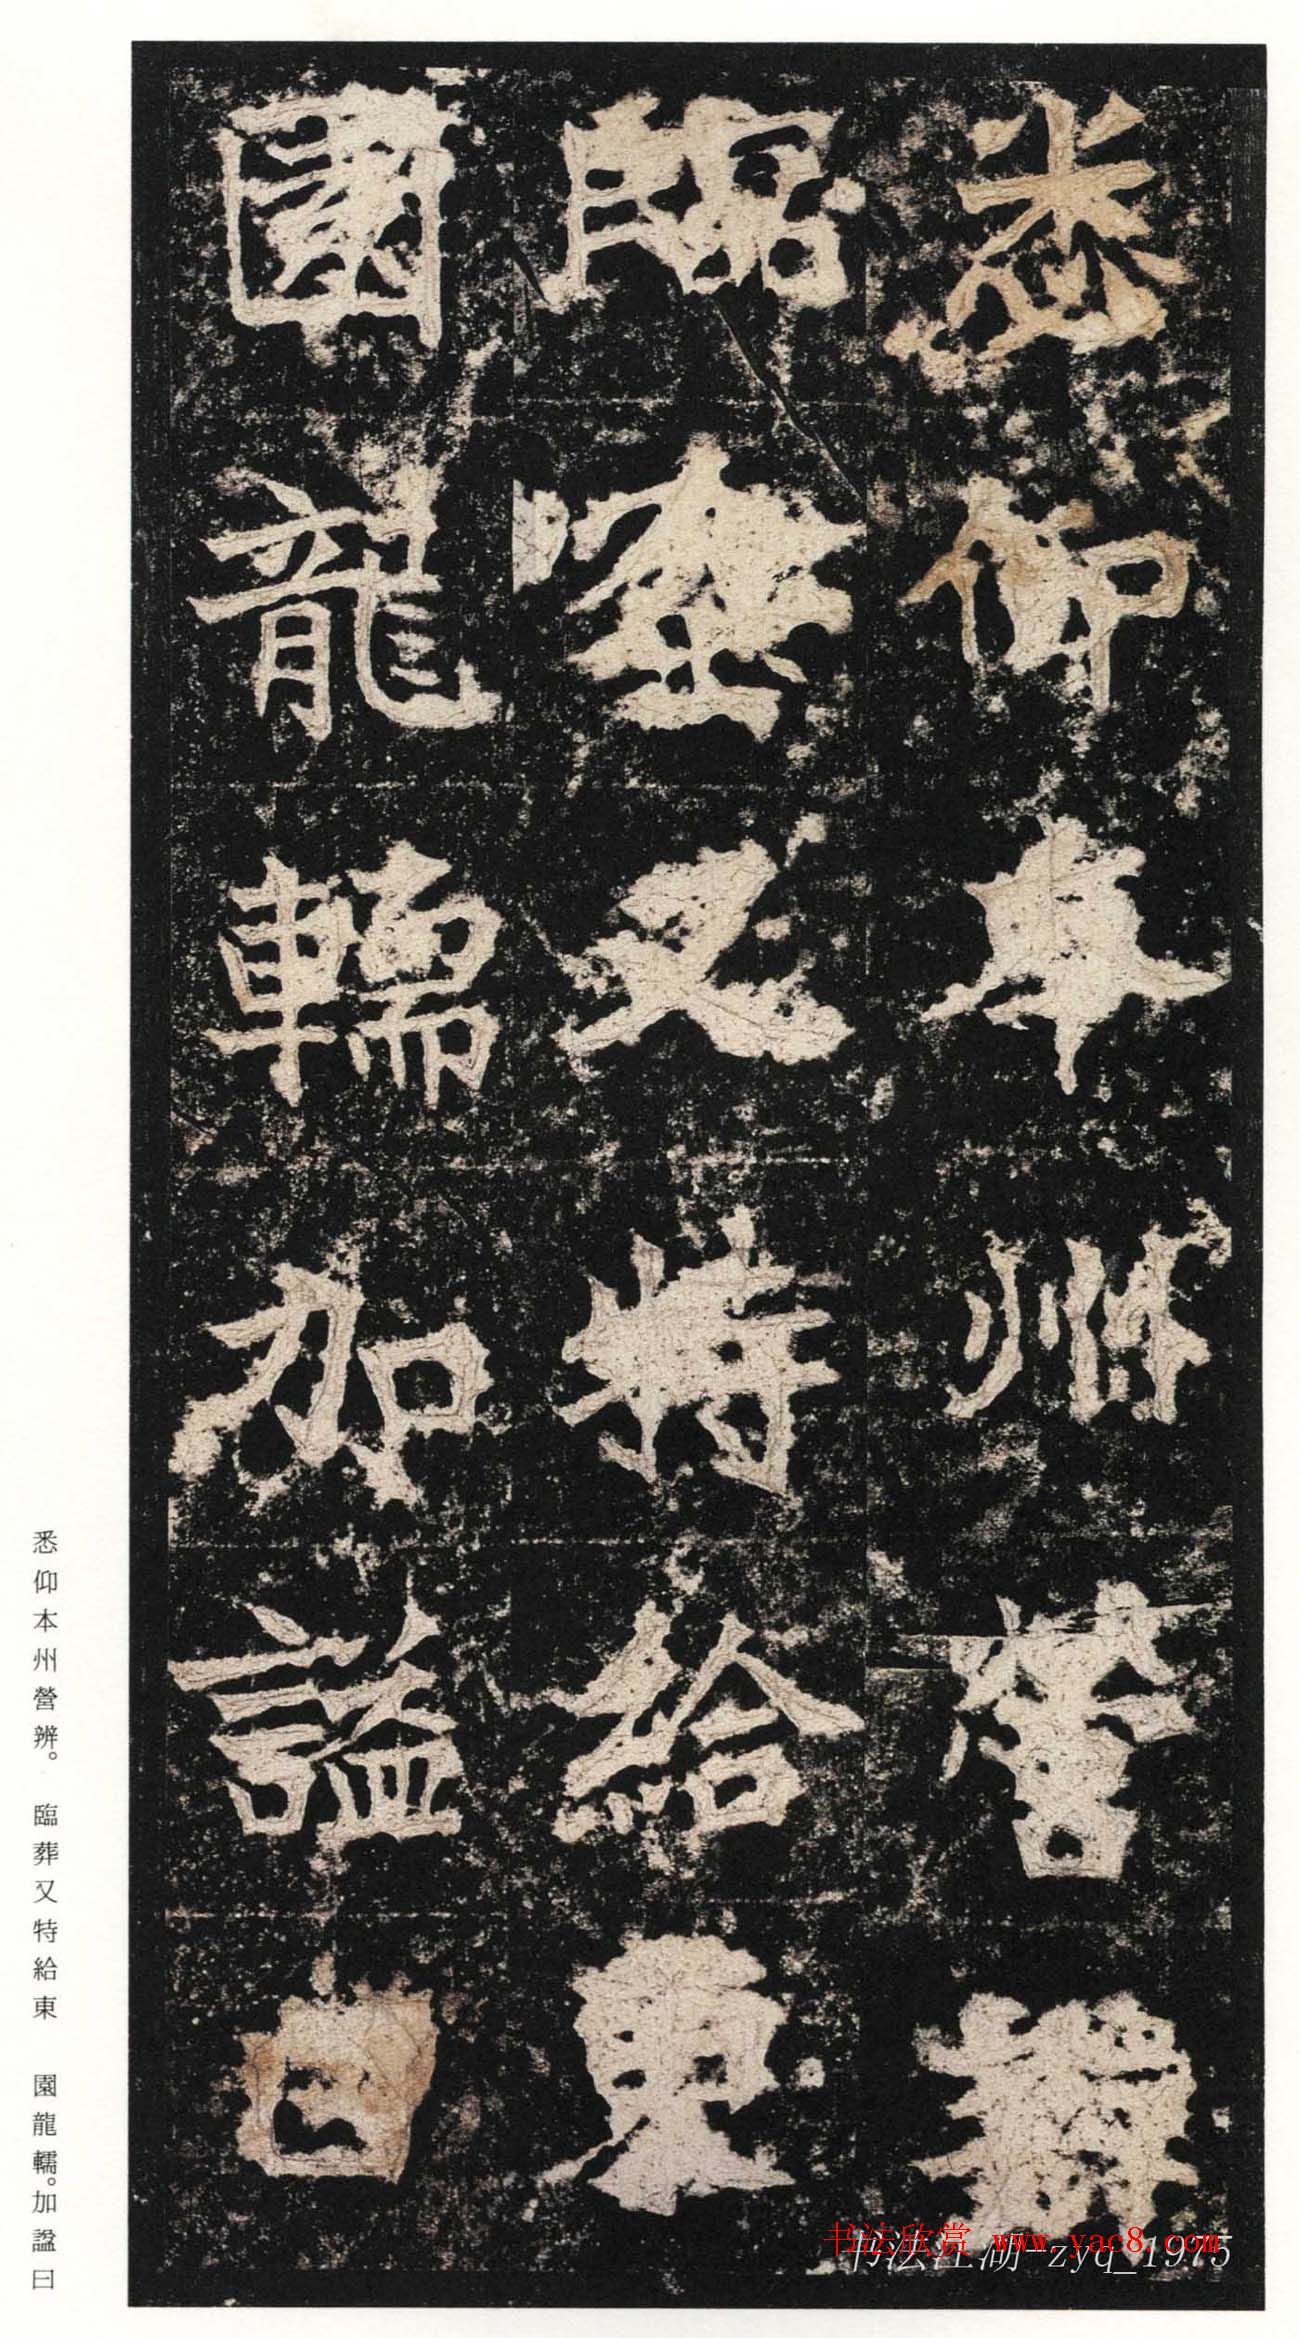 悉仰本州營辨
臨葬又特給東
園龍轜加謚曰
悉仰本州營辨。 臨葬又特給東 園龍轜。加謚曰
书法欣赏 www.yac8.com
书法江湖-zyq_1975